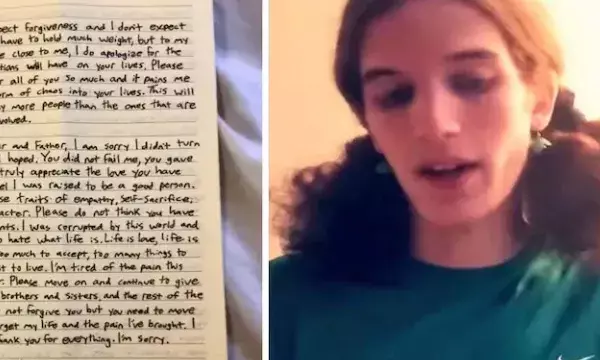 pect forgiveness and I don't expect
have to hold much weight, but to my
e close to me, I do apologize for the
tions will have on your lives. Please
r all of you so much and it pains me
orm of chaos into your lives. This will
y more people than the ones that are
volved.
er and Father, I am sorry I didn't turn
hoped. You did not fail me, you gave
truly appreciate the love you have
el I was raised to be a good person.
se traits of empathy, Self-Sacrifice,
acter. Please do not think you have
nts. I was corrupted by this world and
o hate what life is. Life is love, life is
oo much to accept, too many things to
t to live. I'm tired of the pain this
r. Please move on and continue to give
brothers and sisters, and the rest of the
not forgive you but you need to move
rget my life and the pain I've brought. I
hank you for everything. I'm sorry.